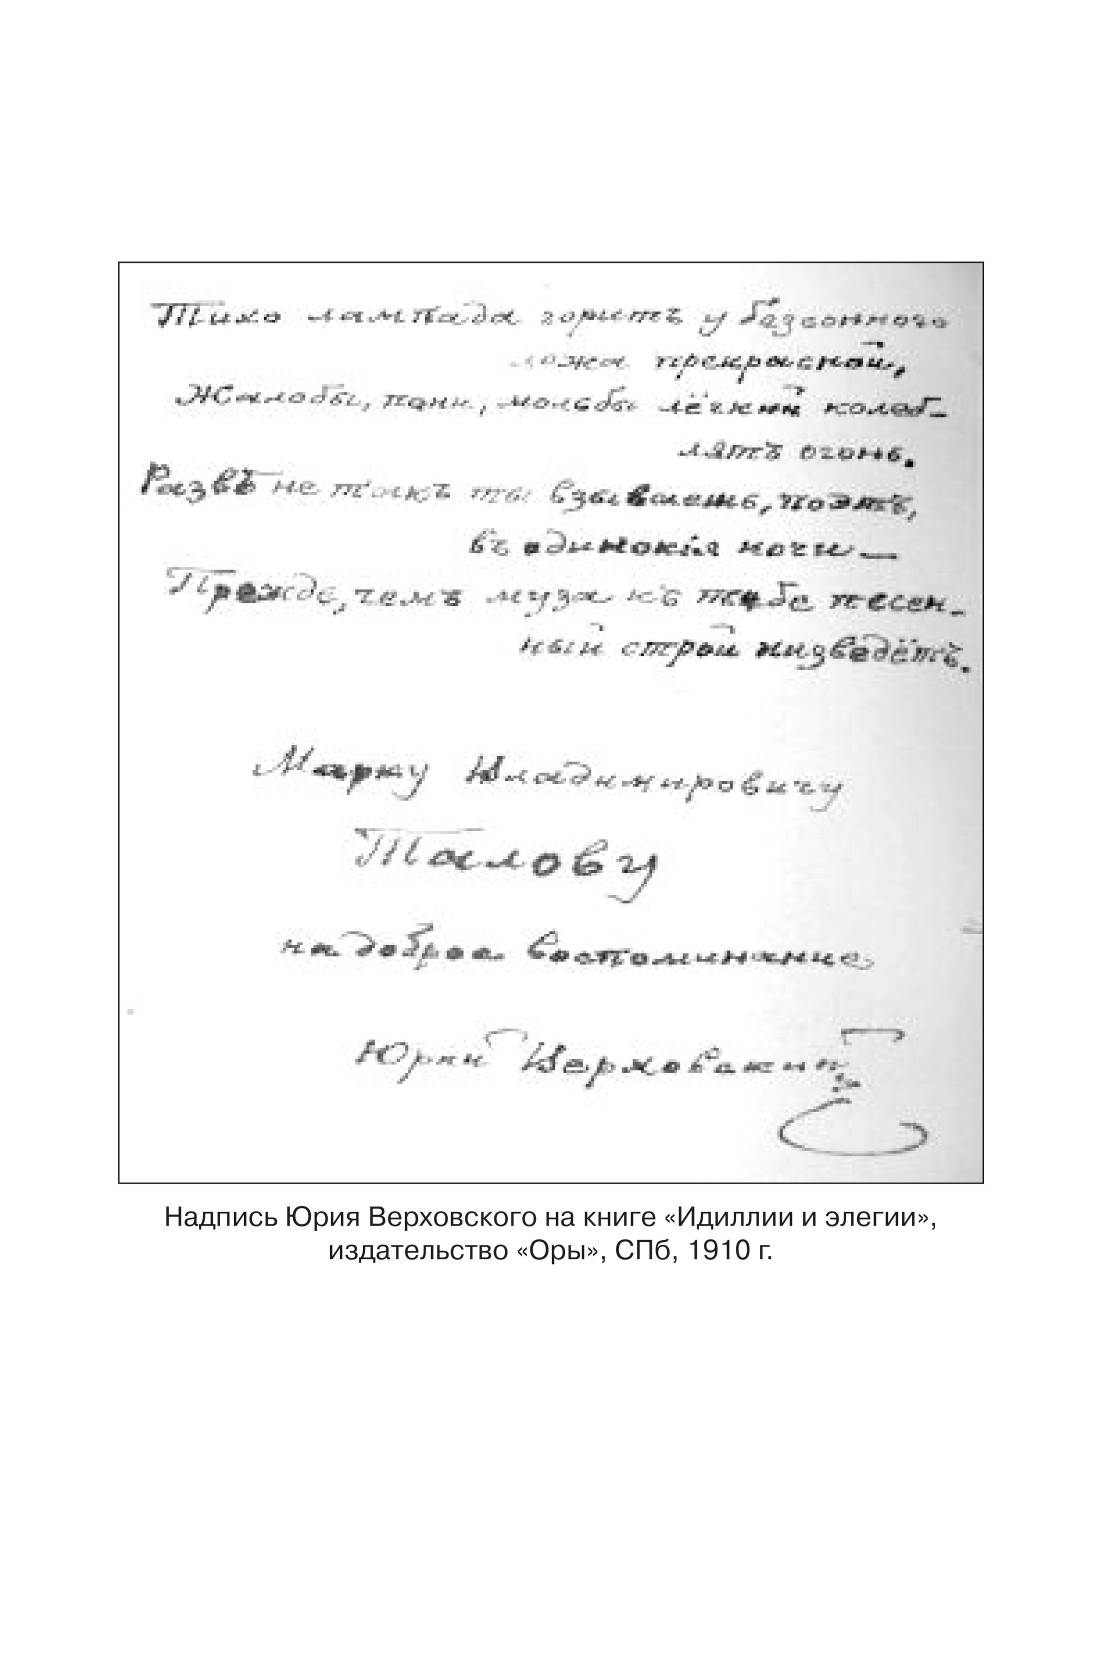 Тихо лампада горитъ у безсонного
ложа прекрасной,
Жалобы, пени, мольбы лёгкий колеб-
лятъ огонь.
Развѣ не такъ ты взываешь, поэтъ,
въ одинокія ночи —
Прежде, чемъ муза къ тебе песен-
ный строй низведётъ.
Марку Владимировичу
Талову
на доброе воспоминание
Юрий Верховский
Надпись Юрия Верховского на книге «Идиллии и элегии»,
издательство «Оры», СПб, 1910 г.